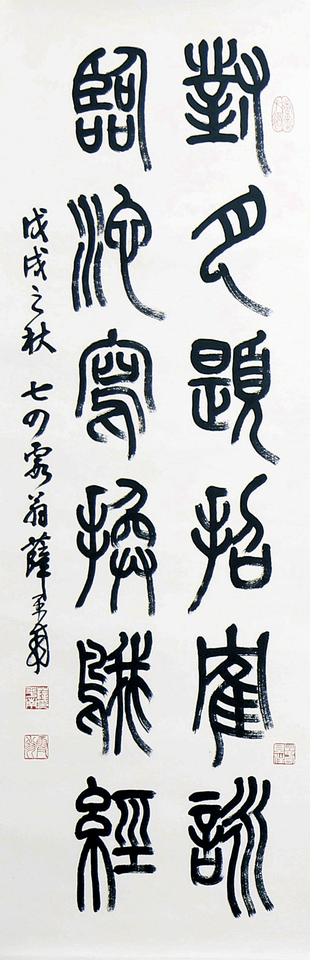 對月題招隺詠
臨池寫換鵝經
戊戌之秋 七四 翁薛平南